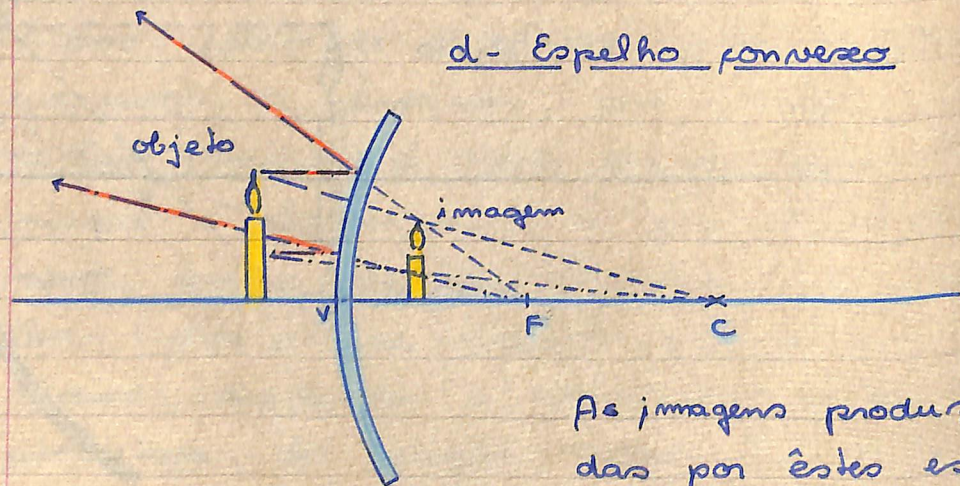 d- Espelho convexo
objeto
imagem
V
F
C
As imagens produ
das por êstes es